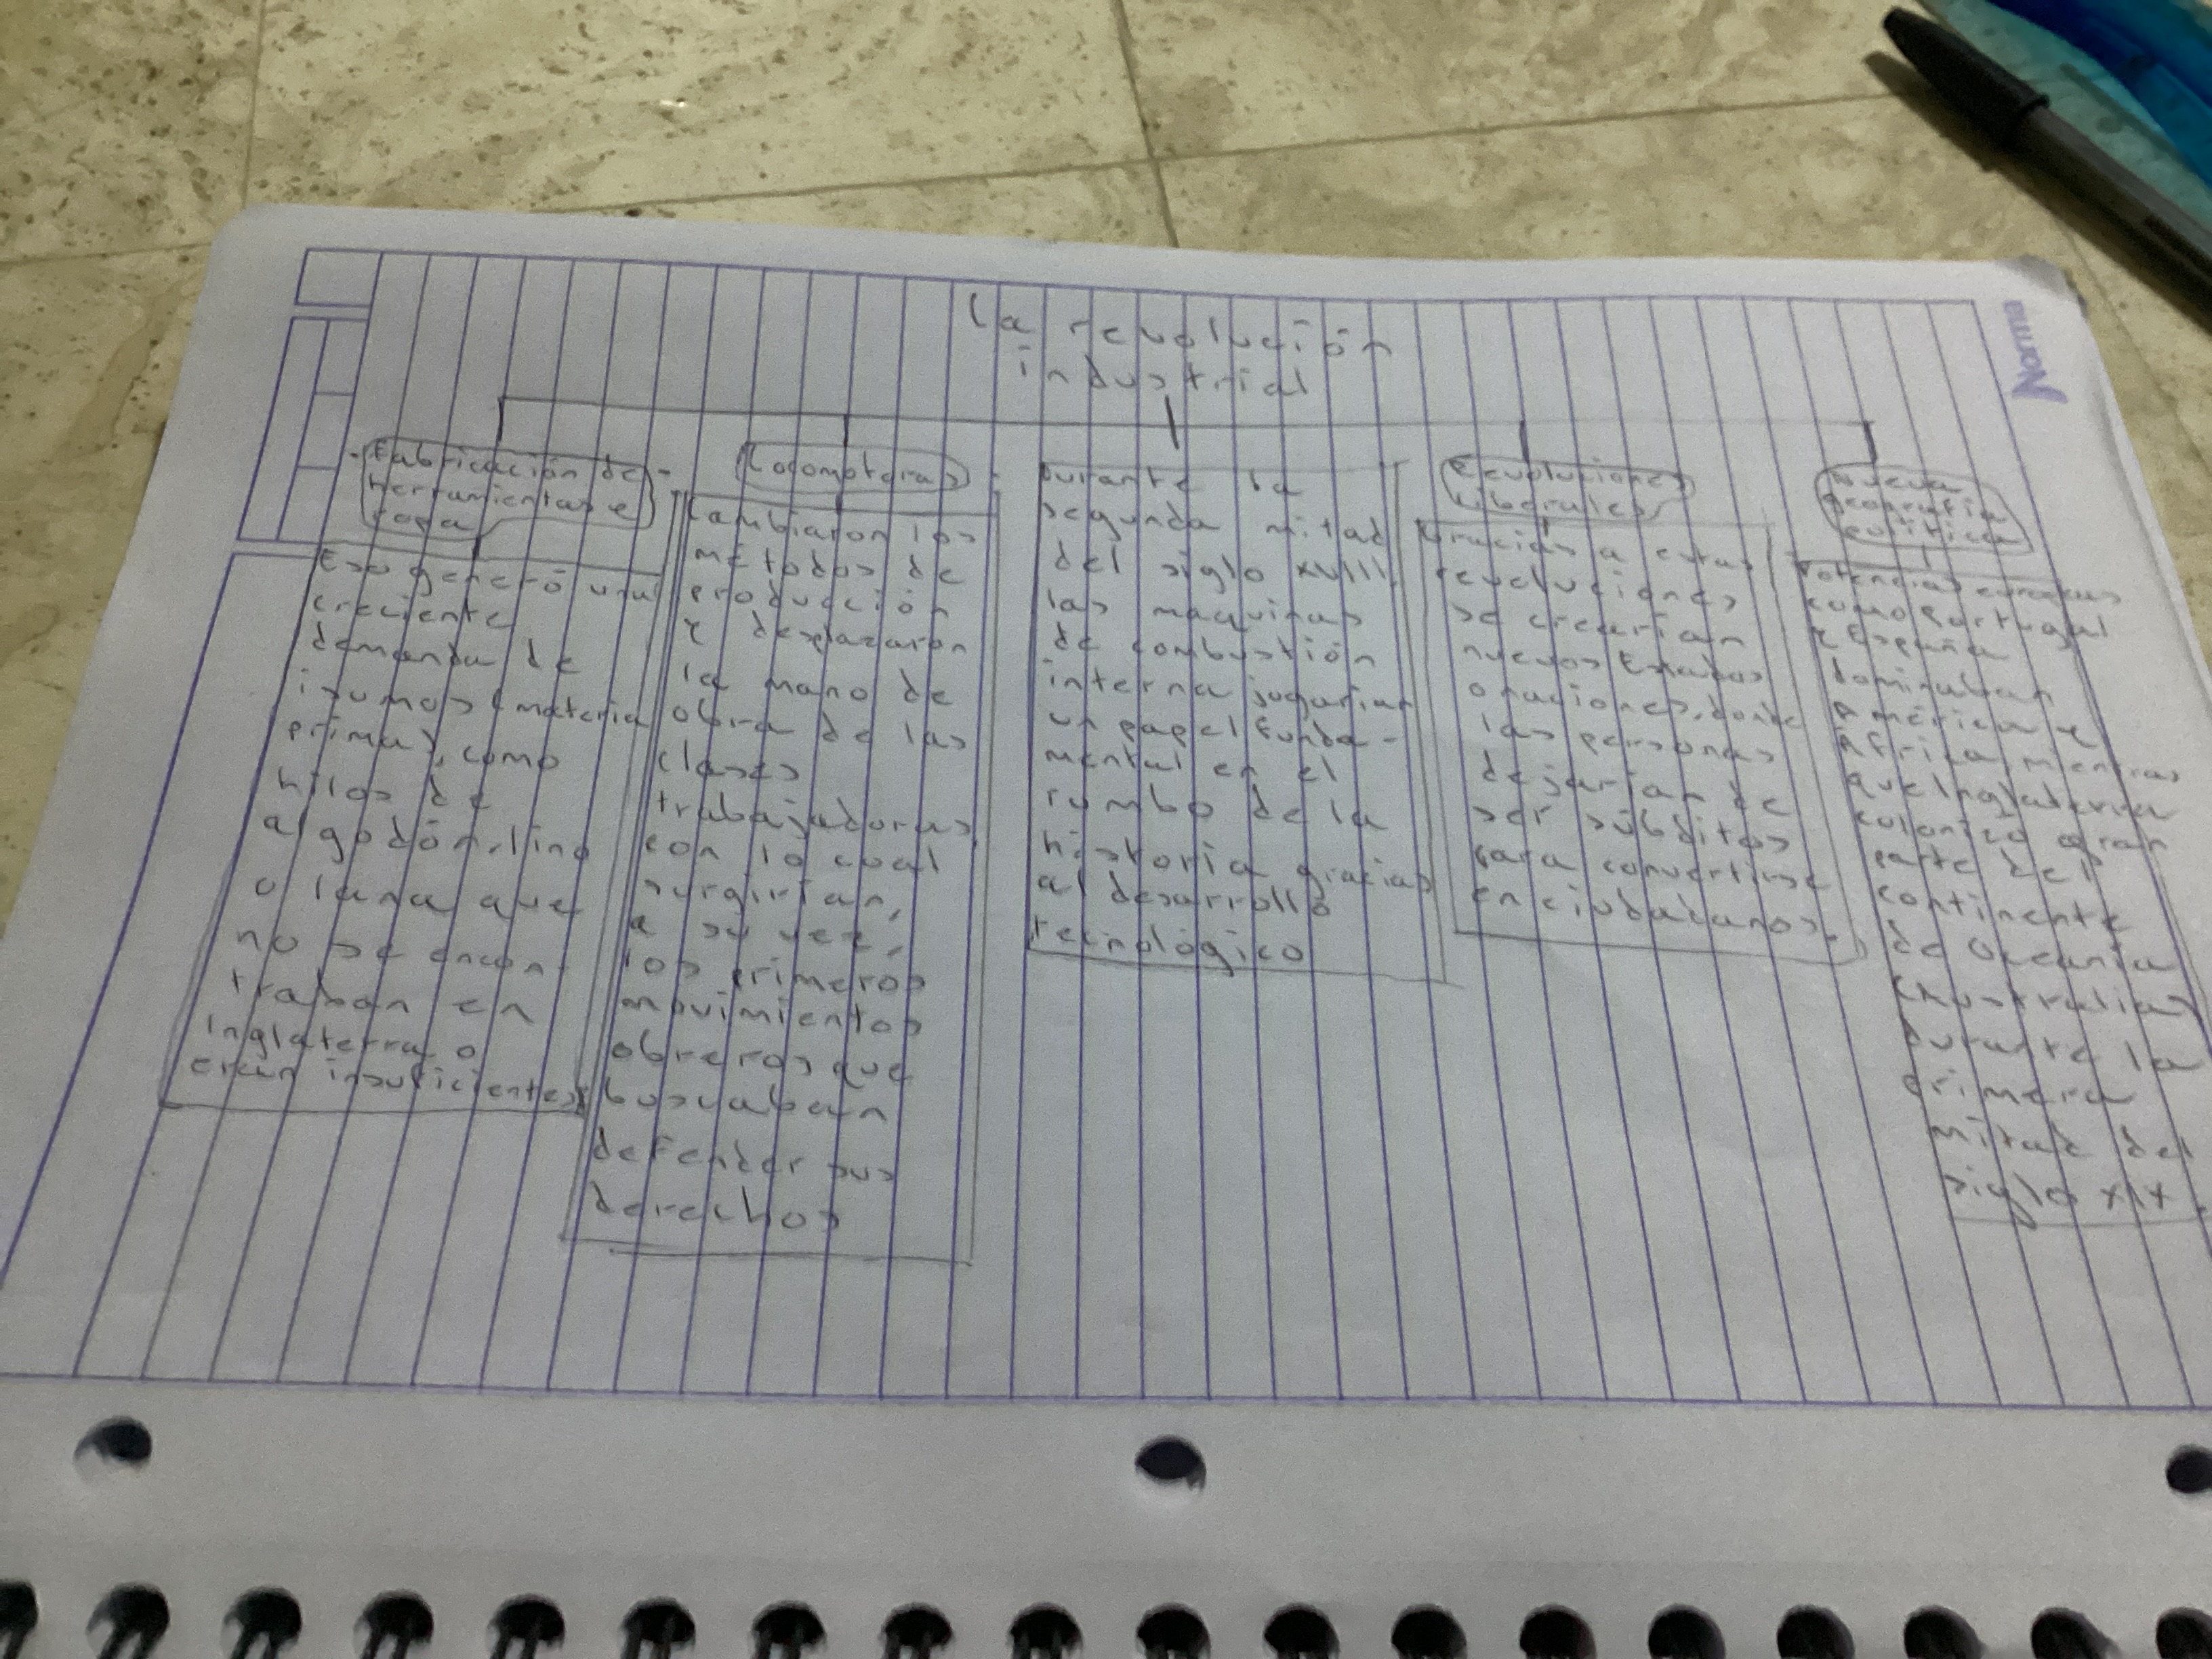 La revolución
industrial
Fabricación de
herramientas e
ropa
Eso generó una
creciente
demanda de
isumos (materia
prima), como
hilos de
algodón, lino
o lana que
no se encon-
traban en
Inglaterra o
eran insuficientes
Locomotoras
Cambiaron los
métodos de
producción
y desplazaron
la mano de
obra de las
clases
trabajadoras,
con lo cual
surgirían,
a su vez,
los primeros
movimientos
obreros que
buscaban
defender sus
derechos
Durante la
segunda mitad
del siglo XVIII,
las maquinas
de combustión
interna jugarian
un papel funda-
mental en el
rumbo de la
historia gracias
al desarrollo
tecnológico
Revoluciones
liberales
Gracias a estas
revoluciones
se crearían
nuevos Estados
o naciones, donde
las personas
dejarían de
ser súbditos
para convertirse
en ciudadanos.
Nueva
geografía
política
Potencias europeas
como Portugal
y España
dominaban
América y
África, mientras
que Inglaterra
colonizó gran
parte del
continente
de Oceanía
(Australia)
durante la
primera
mitad del
siglo XIX
Norma